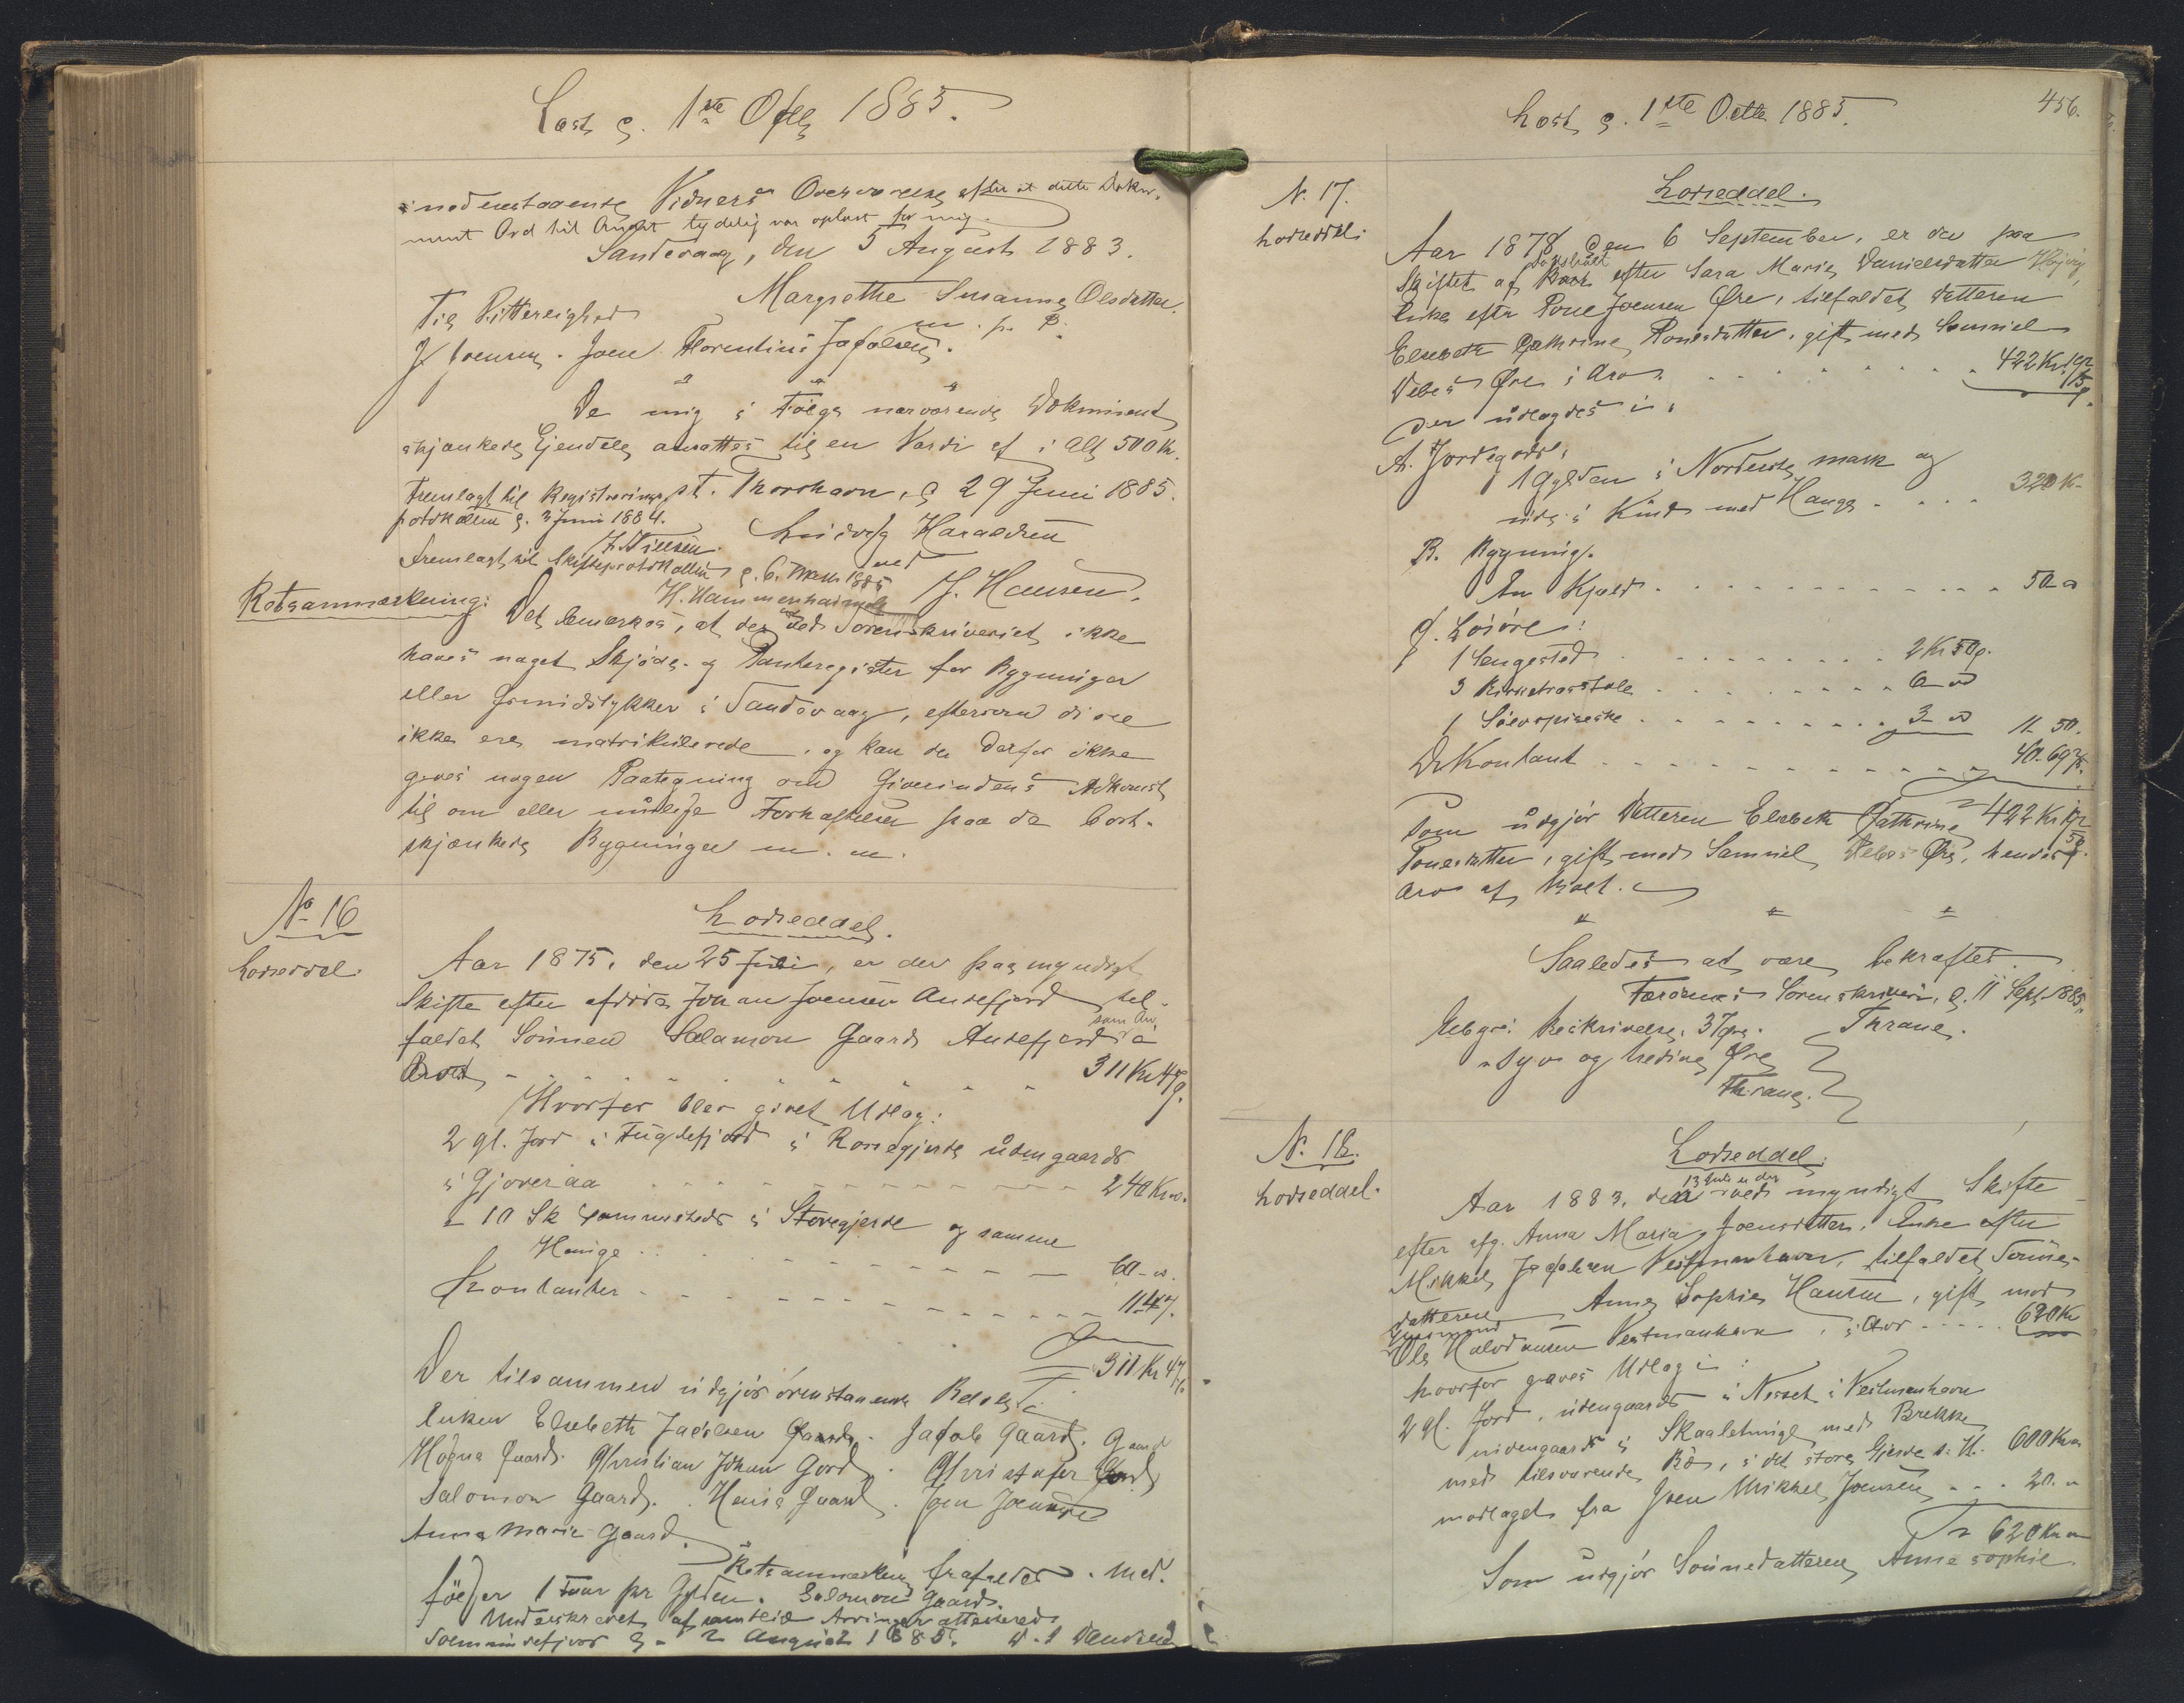 Læst d. 1ste Octb 1885.
nedenstaaende Vidners Overværelse efter at dette Doku-
ment Ord til Andet tydelig var oplæst for mig.
Sandevaag, den 5 August 1883.
Margrethe Susanne Olsdatter
Til Vitterlighed m. p. P.
J Joensen. Joen Florentinus Jacobsen.
De mig i Følge nærværende Dokument
skjænkede Ejendele ansættes til en Værdi af i Alt 500 Kr.
pt. Thorshavn, d 29 Juni 1885.
Fremlagt til Registrerings-
protokollen d. 3 Juni 1884.
Ludvig Haraldsen
Fremlagt til Skifteprotokollen d. 6. 1885
ved
H. Hammershaimb
J. Hansen.
Retsanmærkning:
Det bemærkes, at der ved Sorenskriveriet ikke
haves noget Skjøde- og Panteregister for Bygninger
eller Grundstykker i Sandevaag, eftersom disse
ikke ere matrikulerede, og kan der derfor ikke
gives nogen Paategning om Giverindens Adkomst
til om eller mulige Forhæftelser paa de bort-
skjænkede Bygninger m. m.
No 16
Lodseddel.
Lodseddel.
Aar 1875, den 25 Juli, er der paa myndigt
Skifte efter afdøde Johan Joensen Andefjord til-
faldet Sønnen Salamon Gaard Andefjord som Arv
Arvet 311 Kr 47 ø.
Hvorfor blev givet Udlæg:
2 gl. Jord i Fuglefjord i Rossegjerde udengaards
i Gjoveraa 240 Kr
- 10 Sk sammesteds i Storegjerde og samme
Hauge 60 - "
Kontanter 11.47.
311 Kr 47
Der tilsammen udgjør ovenstaaende Beløb
Enken Elsebeth Jacobsen Gaard. Jacob Gaard.
Høgna Gaard. Christian Johan Gord. Christofer Gord
Salomon Gaard. Hans Gaard. Joen Joensen
Anna Marie Gaard.
Retsanmærkning frafaldes. Med.
følger 1 Faar pr Gylden. Salomon Gaard.
Underskrevet af samtlige Arvinger attesteres
d. 2 August 1885.
456.
Læst d. 1ste Octb 1885.
N. 17.
Lodseddel.
Lodseddel.
Aar 1878, den 6 September, er der paa
Skiftet af Boet efter Sara Marie Danielsdatter Højvig,
Enke efter Poul Joensen Øre, tilfaldet Datteren
Elsebeth Cathrine Poulsdatter, gift med Samuel
Debes Øre i Arv 422 Kr 19
Der udlagdes i:
A. Jordegods:
1 Gylden i Norderste mark og
inde i Kund med Hauge 320 K
B. Bygning.
En Kjeld 50 "
C. Løsøre:
1 Sengested 2 Kr 50 ø.
3 Kirketræstole 6 "
1 Sølvspiseske 3 " 11 50.
D. Kontant 40.69
Som udgjør Datteren Elsebeth Cathrine 422 Kr 19
Poulsdatter, gift med Samuel Debes Øre, hendes
Arv af Boet.
Saaledes at være bekræftes.
Færøernes Sorenskriveri, d. 11 Sept 1885.
Gebyr: Beskrivelse. 37 Thrane.
Syv og tredive Øre
Thrane.
N. 18.
Lodseddel.
Lodseddel.
Aar 1883, den 13 Juli er der ved myndigt Skifte
efter afg. Anna Maria Joensdatter, Enke efter
Mikkel Jacobsen Vestmanhavn, tilfaldet Sønne-
datteren Anne Sophie Hansen, gift med
Ole Halvdansen Vestmanhavn, i Arv 620 Kr
hvorfor gaves Udlæg i:
2 gl. Jord, udengaards i Nesset i Vestmanhavn
indengaards i Skaaletunge med Brekke
med tilsvarende Bø, i det store Gjerde s. H. 600 Kr
modtaget fra Joen Mikkel Joensen 20. "
620 Kr
Som udgjør Sønnedatteren Anne Sophie